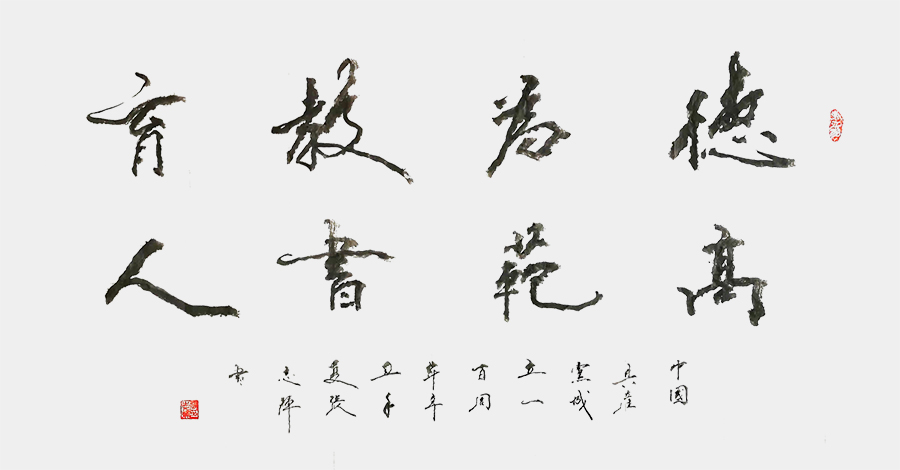 德高
為範
教書
育人
中國
共産
党成
立一
百周
年辛
丑年
夏張
志陣
书